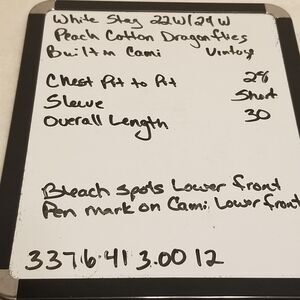 White Stag 22W/24W
Peach Cotton Dragonflies
Built in Cami Vintage
Chest Pit to Pit 28
Sleeve Short
Overall Length 30
Bleach spots Lower front
Pen mark on Cami Lower front
3376.41 3.00 12